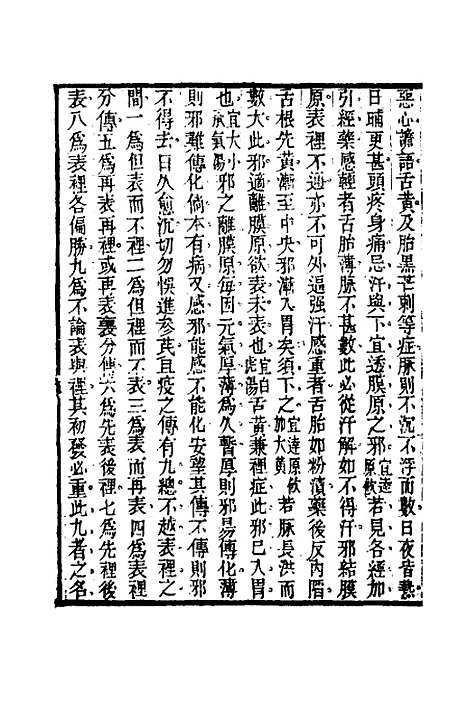 惡心譫語舌黃及胎黑芒刺等症脉則不沉不浮而數日夜皆熱
日晡更甚頭疼身痛忌汗與下宜透膜原之邪宜達原飲若見各經加
引經藥感輕者舌胎薄脉不甚數此必從汗解如不得汗邪結膜
原表裡不通亦不可外逼強汗感重者舌胎如粉漬藥後反內陷
舌根先黃漸至中央邪漸入胃矣須下之宜達原飲加大黃若脉長洪而
數大此邪適離膜原欲表未表也宜白虎湯舌黃兼裡症此邪已入胃
也宜大小承氣湯邪之離膜原每因元氣厚薄爲久暫厚則邪易傳化薄
則邪難傳化倘本有病又感邪能感不能化安望其傳不傳則邪
不得去日久愈沉切勿悞進參芪且疫之傳有九總不越表裡之
間一爲但表而不裡二爲但裡而不表三爲表而再表四爲表裡
分傳五爲再表再裡或再表裏分傳六爲先表後裡七爲先裡後
表八爲表裡各偏勝九爲不論表與裡其初發必重此九者之名